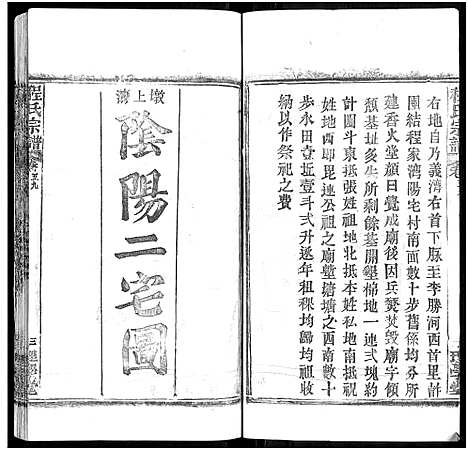 程氏宗譜
右地自乃義濟右首下脉王李勝河西首里前
團結程家濟陽宅村南面數十步舊係均分所
建香火堂顏曰覺成廟後因兵燹焚毀廟字傾
頹基址多年所剩餘基開墾棉地一連弍塊約
計圖斗東抵張姓祖地北抵本姓私地南抵祝
姓地西即毘連公祖之廟壟塘塘之西南數十
步永田壹坵壹斗弍升逐年租稞均歸均祖收
納以作祭祀之費
墩上濟
陰陽二宅圖
程氏宗譜
卷五九
三